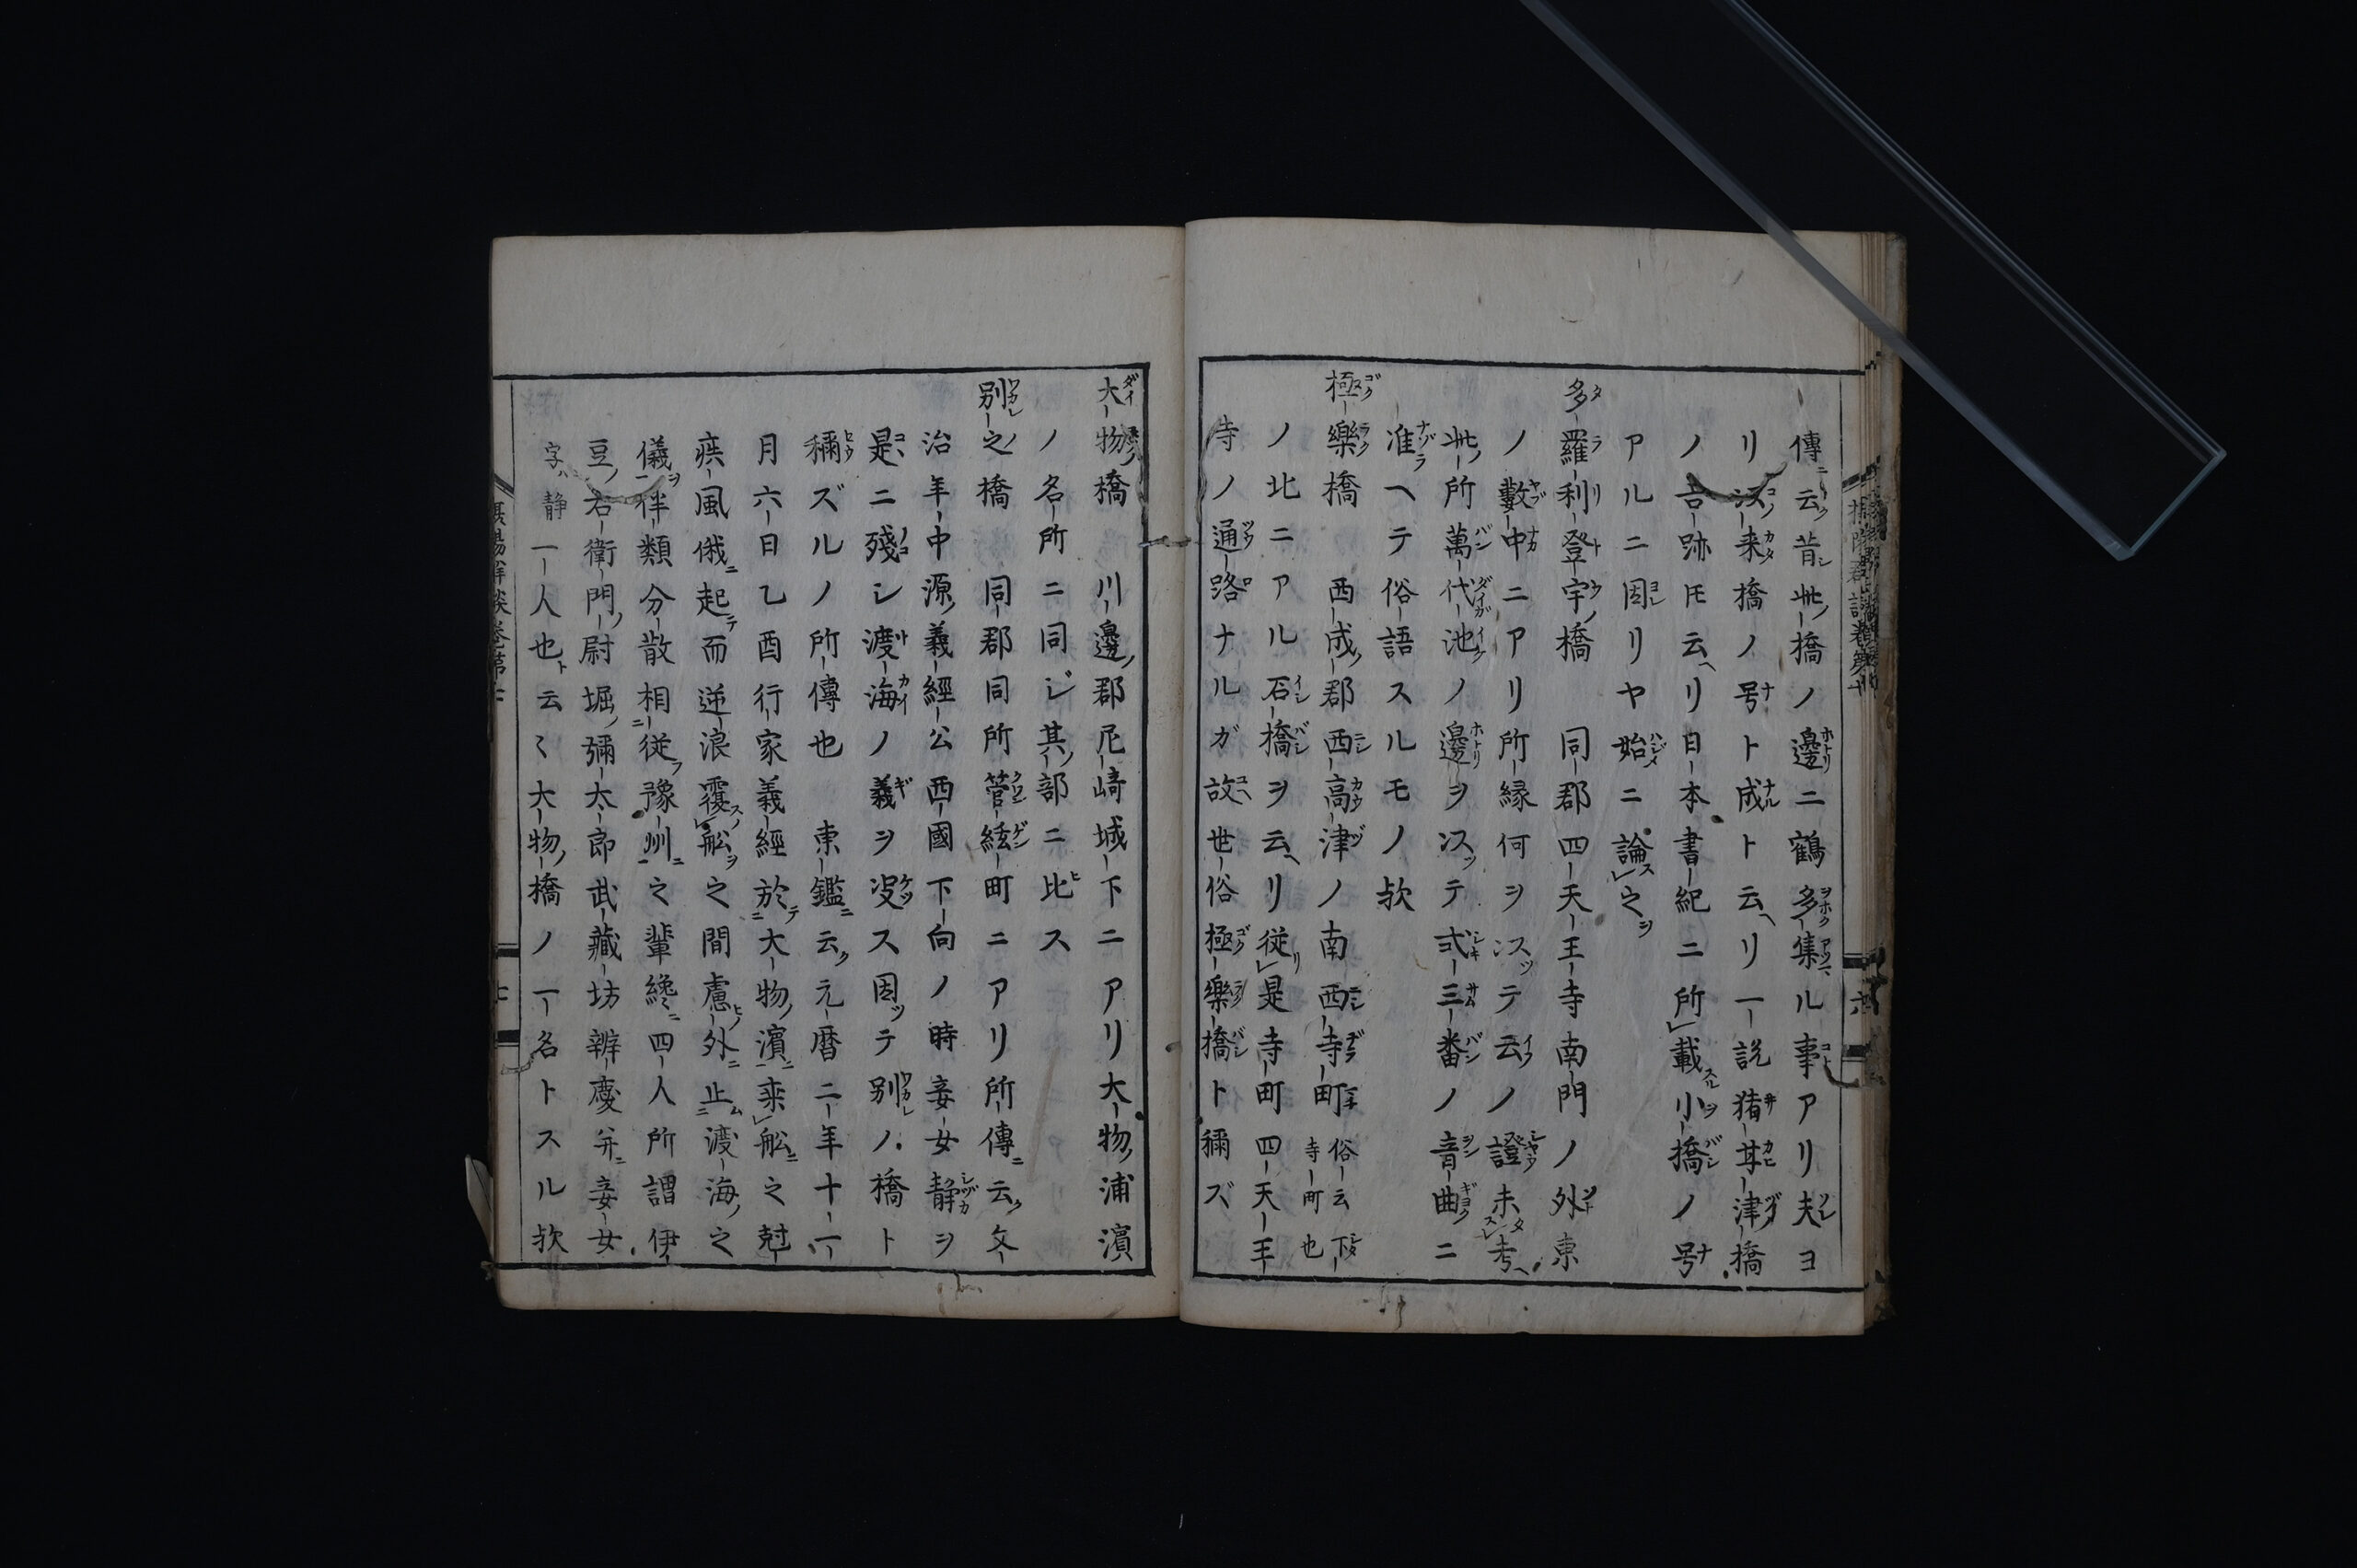 傳云昔此橋ノ邊ニ鶴多集ル事アリ夫ヨ
リ以来橋ノ号ト成ト云リ一説猪甘津橋
ノ古跡ﾓ云リ日本書紀ニ所載小橋ノ号
アルニ因リヤ始ニ論之
多羅利登宇橋 同郡四天王寺南門ノ外東
ノ藪中ニアリ所縁何ヲ以テ云ノ證未考
此所萬代池ノ邊ヲ以テ弐三番ノ音曲ニ
准ヘテ俗語スルモノ欤
極樂橋 西成郡西高津ノ南西寺町俗云下寺町也
ノ北ニアル石橋ヲ云リ従是寺町四天王
寺ノ通路ナルガ故世俗極樂橋ト稱ズ
大物橋 川邊郡尼崎城下ニアリ大物浦濱
ノ名所ニ同ジ其部ニ比ス
別之橋 同郡同所管絃町ニアリ所傳云文
治年中源義經公西國下向ノ時妾女静ヲ
是ニ殘シ渡海ノ義ヲ决ス因ッテ別ノ橋ト
稱ズルノ所傳也 東鑑云元暦二年十一
月六日乙酉行家義經於大物濱乗舩之尅
疾風俄起而逆浪覆舩之間慮外止渡海之
儀伴類分散相従豫州之輩纔四人所謂伊
豆右衛門尉堀彌太郎武藏坊辨慶并妾女
字静一人也云〻大物橋ノ一名トスル欤